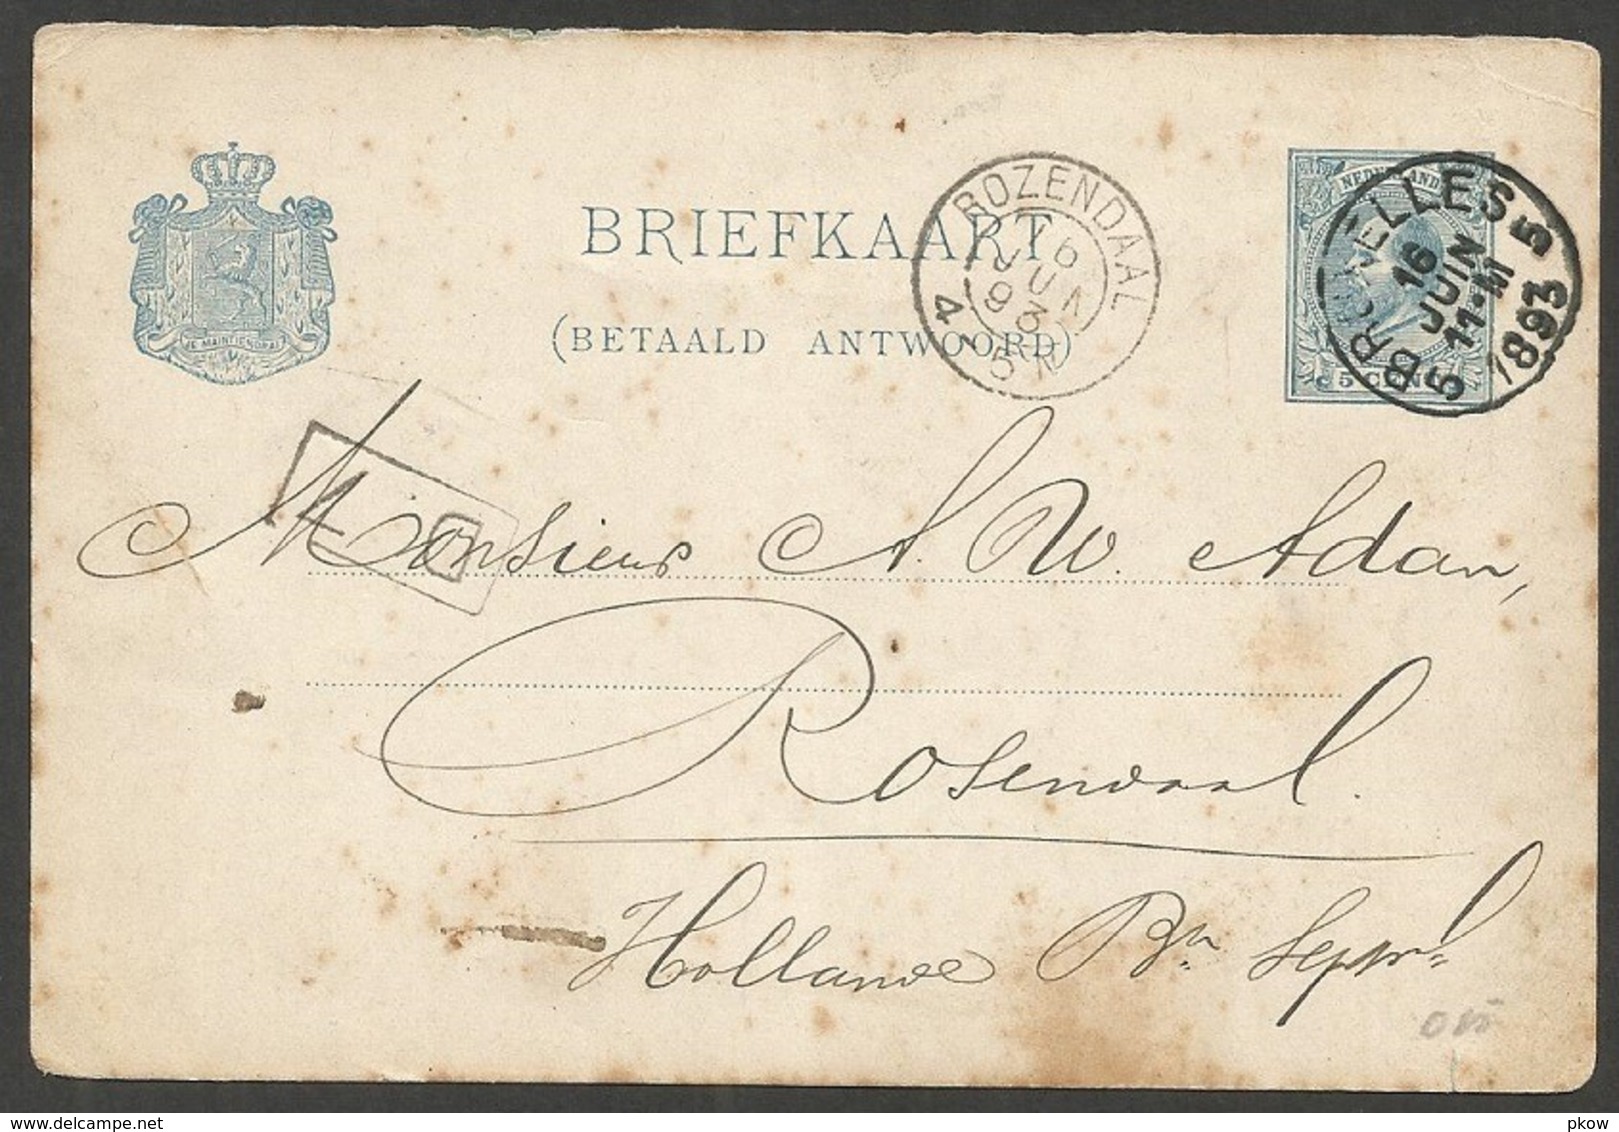 JE MAINTIENDRAI
BRIEFKAART
(BETAALD ANTWOORD)
ROZENDAAL
16 JUN 93
4 - 5 N
NEDERLAND
5 CENT
BRUXELLES 5
16
JUIN
11-M
5
1893
Monsieur A. W. Adan,
Rosendaal.
Hollande Bn
pkow